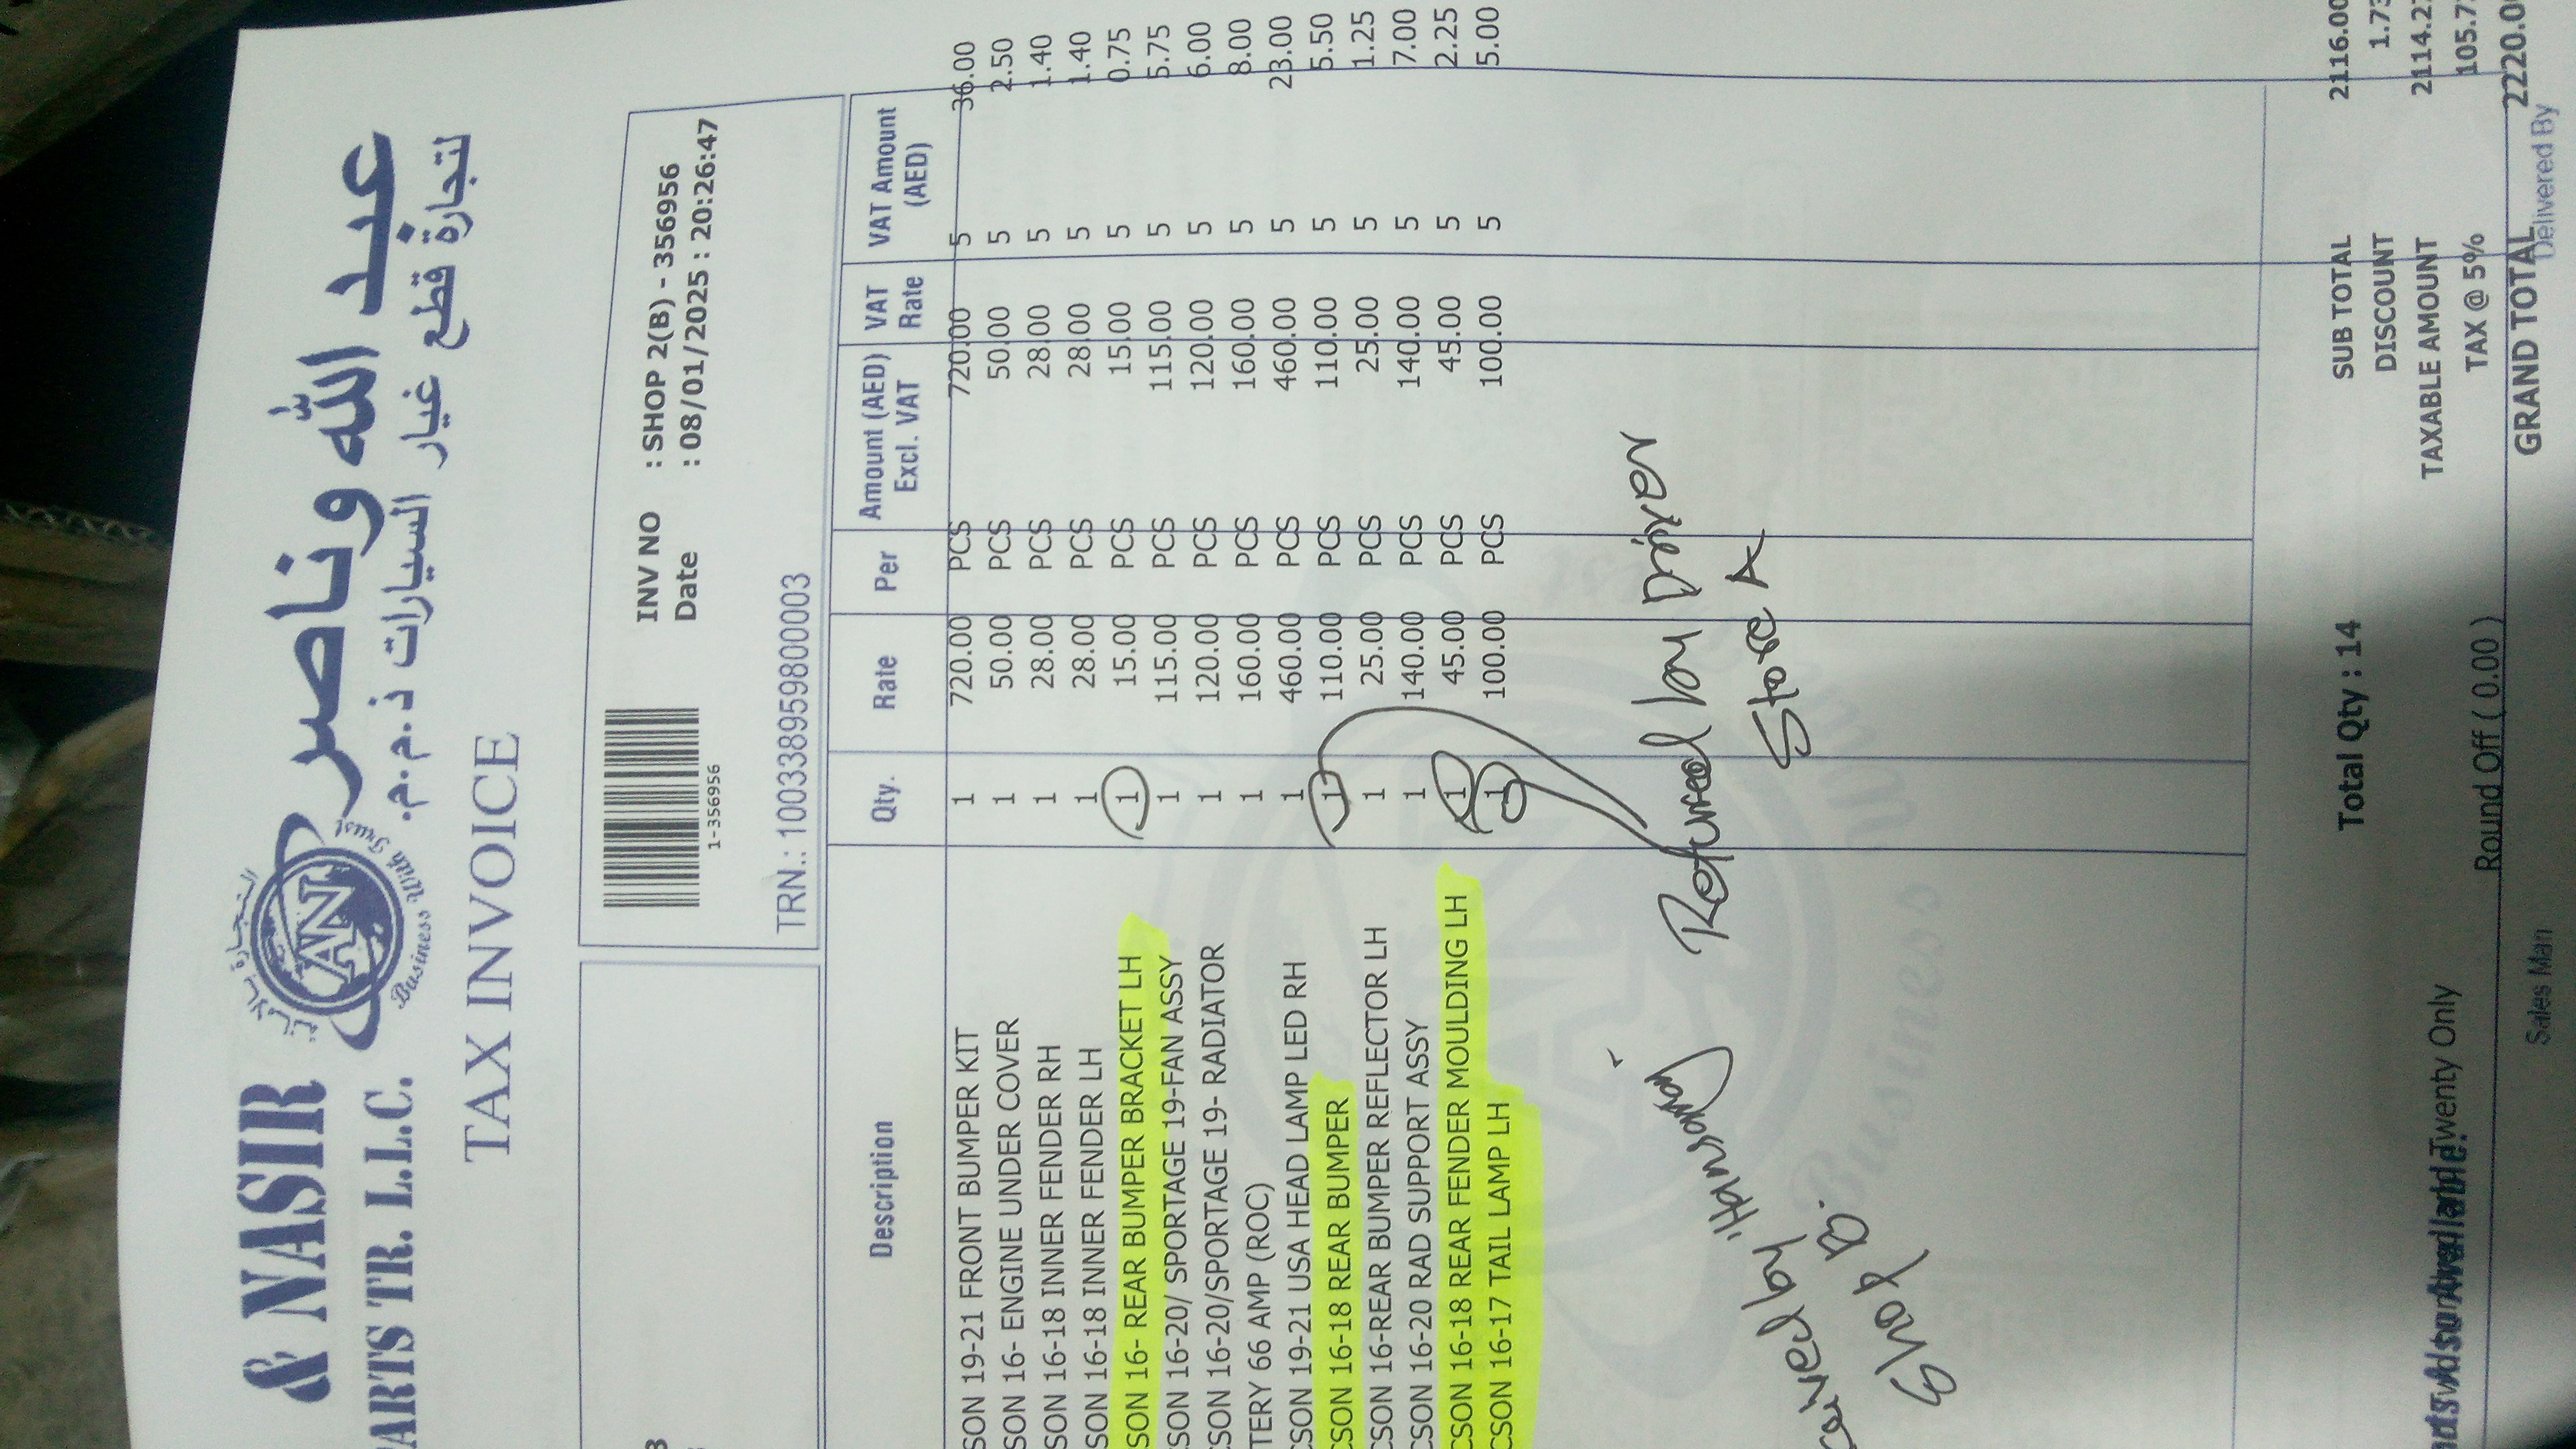 عبد الله وناصر
لتجارة قطع غيار السيارات ذ.م.م.
& NASIR
ARTS TR. L.L.C.
AN
Business With Trust
TAX INVOICE
1-356956
INV NO : SHOP 2(B) - 356956
Date : 08/01/2025 : 20:26:47
TRN.: 100338959800003
Description Qty. Rate Per Amount (AED) Excl. VAT VAT Rate VAT Amount (AED)
SON 19-21 FRONT BUMPER KIT 1 720.00 PCS 720.00 5 36.00
SON 16- ENGINE UNDER COVER 1 50.00 PCS 50.00 5 2.50
SON 16-18 INNER FENDER RH 1 28.00 PCS 28.00 5 1.40
SON 16-18 INNER FENDER LH 1 28.00 PCS 28.00 5 1.40
SON 16- REAR BUMPER BRACKET LH 1 15.00 PCS 15.00 5 0.75
SON 16-20/ SPORTAGE 19-FAN ASSY 1 115.00 PCS 115.00 5 5.75
SON 16-20/SPORTAGE 19- RADIATOR 1 120.00 PCS 120.00 5 6.00
TERY 66 AMP (ROC) 1 160.00 PCS 160.00 5 8.00
SON 19-21 USA HEAD LAMP LED RH 1 460.00 PCS 460.00 5 23.00
SON 16-18 REAR BUMPER 1 110.00 PCS 110.00 5 5.50
CSON 16-REAR BUMPER REFLECTOR LH 1 25.00 PCS 25.00 5 1.25
CSON 16-20 RAD SUPPORT ASSY 1 140.00 PCS 140.00 5 7.00
CSON 16-18 REAR FENDER MOULDING LH 1 45.00 PCS 45.00 5 2.25
CSON 16-17 TAIL LAMP LH 1 100.00 PCS 100.00 5 5.00
Returned by Driver
Store A
by
Shop B.
Total Qty : 14
SUB TOTAL 2116.00
DISCOUNT 1.73
TAXABLE AMOUNT 2114.27
TAX @ 5% 105.7
Twenty Only
Round Off ( 0.00 )
GRAND TOTAL 2220.0
Sales Man
Delivered By